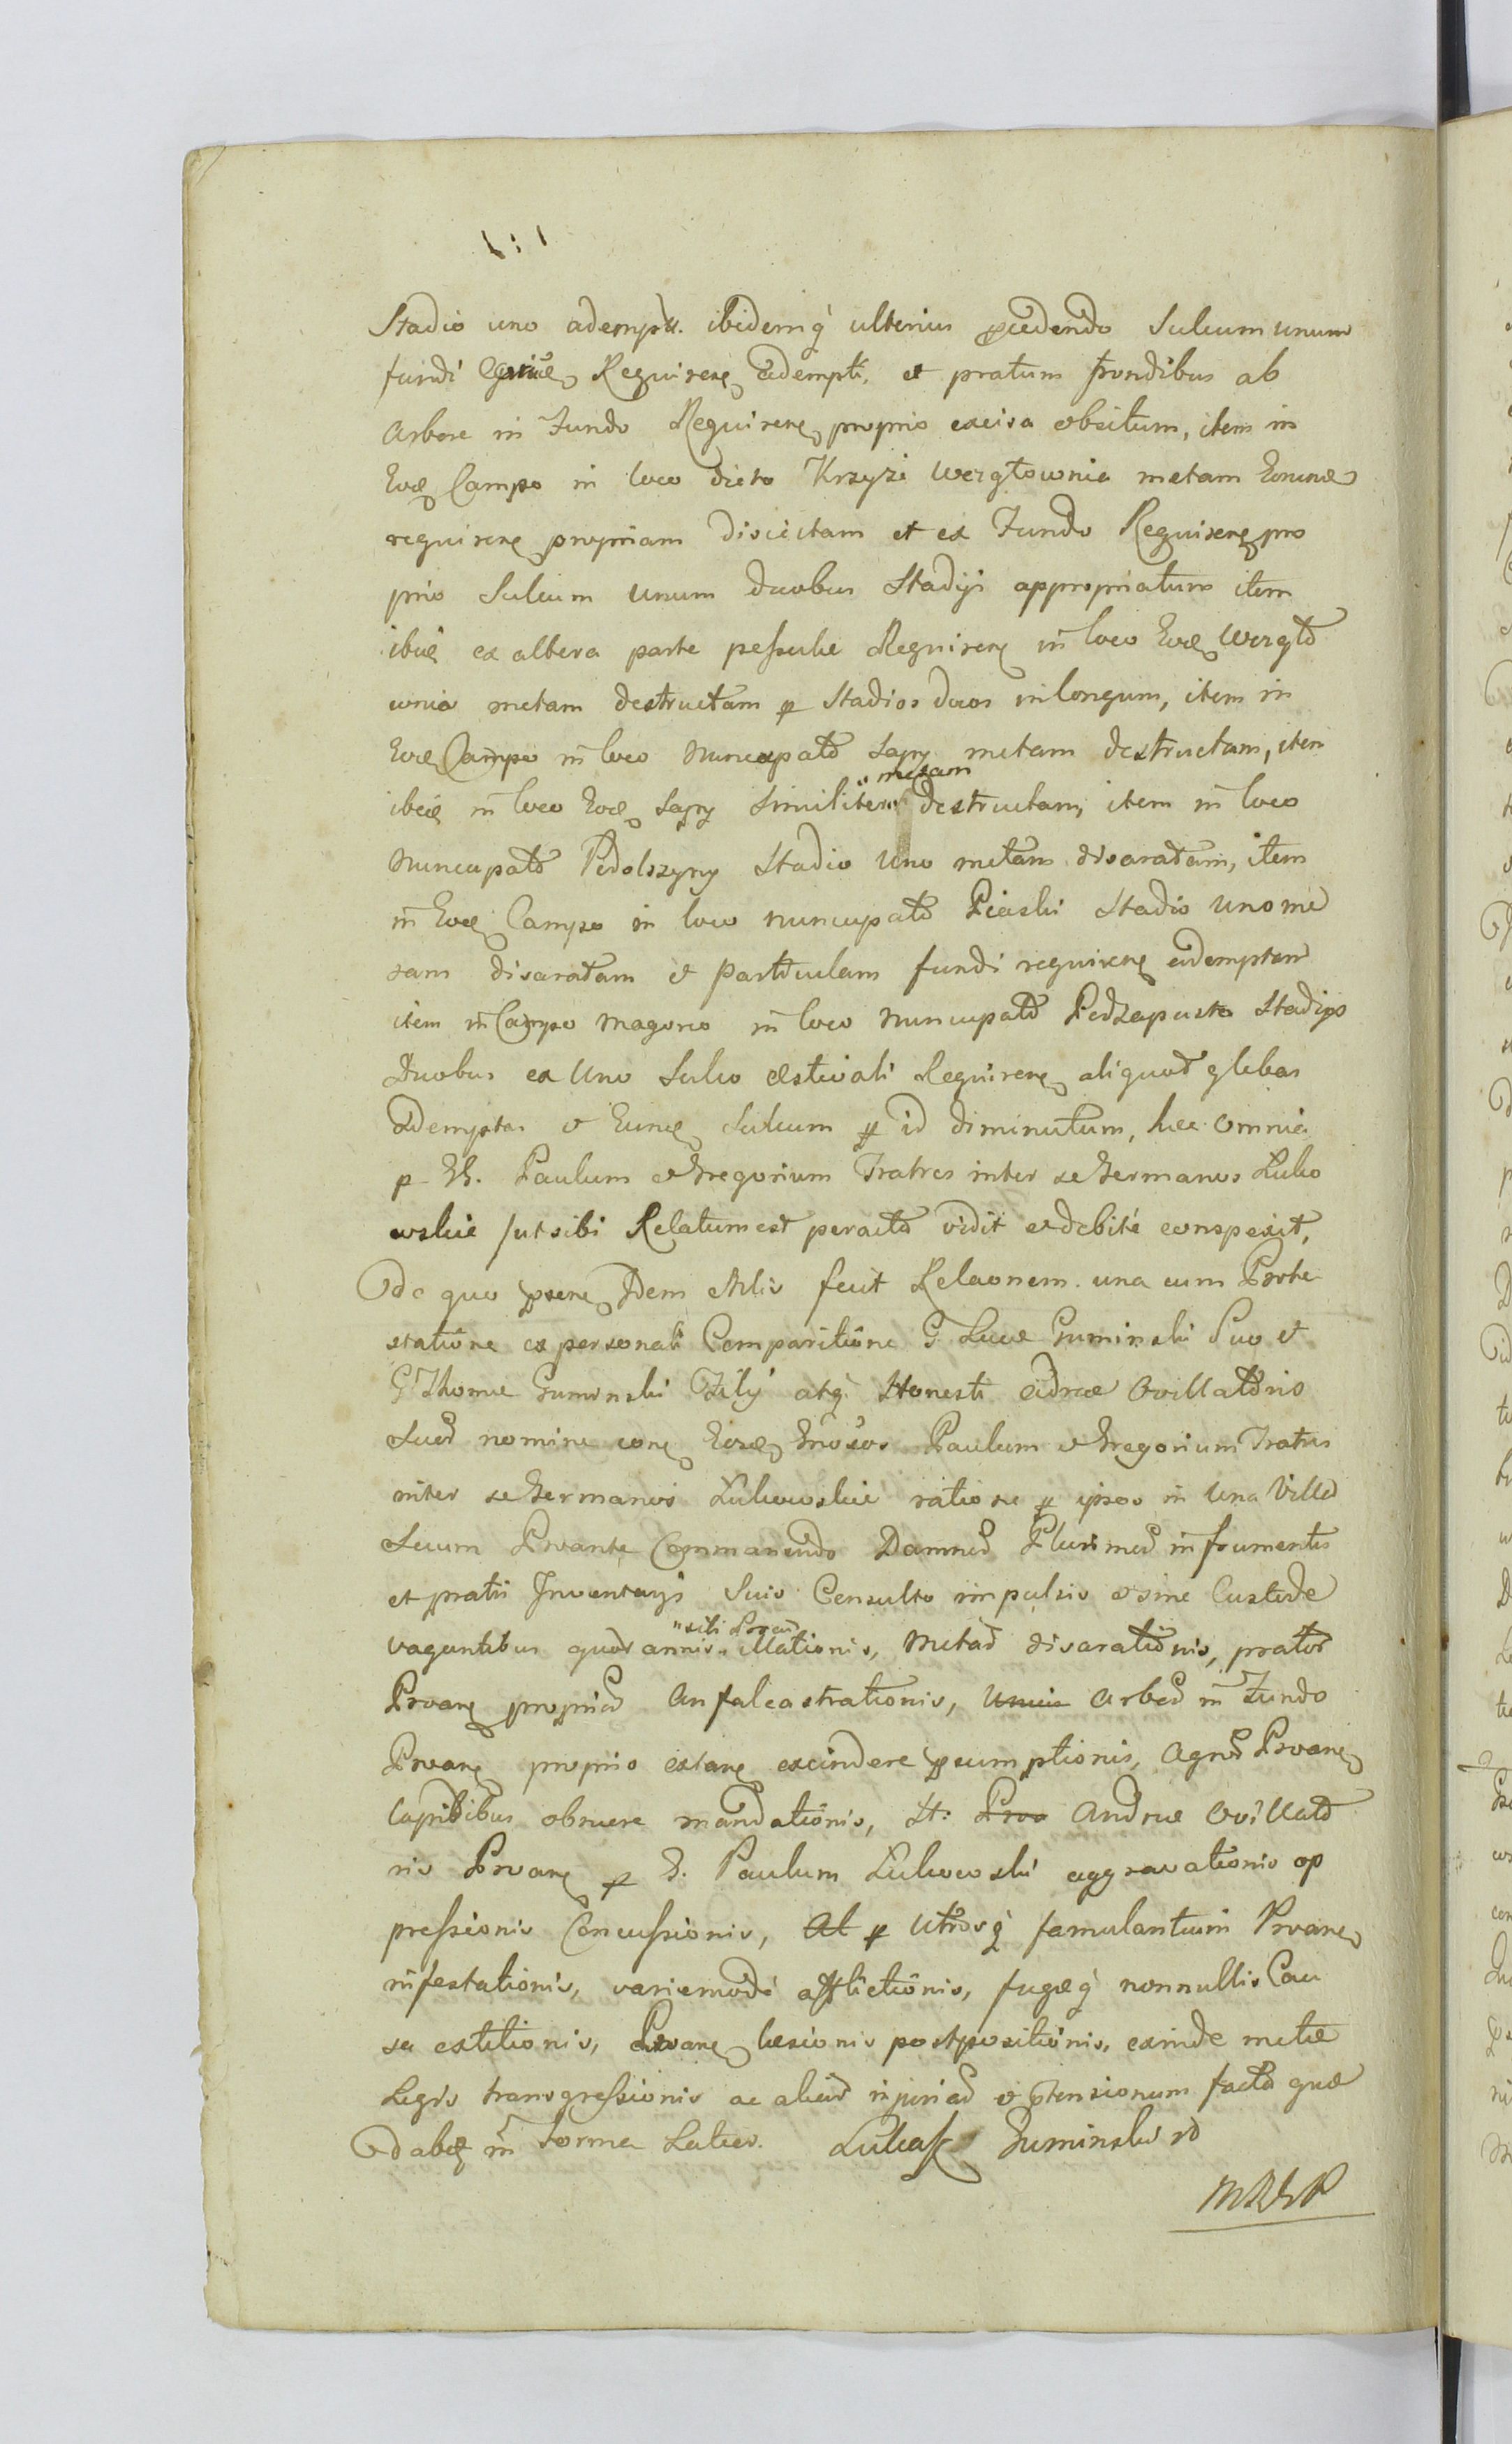 Stadio uno adempt. ibidemq ulterius pcedendo Sulcum unum
fundi Requirenę adempti, et pratum frondibus ab
Arbore in Fundo Requirenę proprio excisa obsitum, item in
Eoď Campo in loco dicto Krzyżi Wezgłownia metam
requirenę propriam disiectam et ex Fundo Requirenę pro
prio Sulcum unum duobus Stadijs appropriatum item
ibid ex altera parte pessulie Requirenę in loco Eod Wezgło
wnia metam destructam p Stadios duos in longum, item in
Eod Campo in loco Nuncupato Sapy metam destructam, item
ibid in loco Eod Sapy Similiter "metam" destructam, item in loco
Nuncupato Podolszyny Stadio Uno metam disaratam, item
in Eod Campo in loco nuncupato Piaski Stadio Uno me
tam disaratam et particulam fundi requirenę ademptam
item in Campo magorio in loco Nuncupato Podzapuste Stadijs
Duobus ex Uno Sulco estivali Requirenę aliquot glebas
Ademptas et Eund Sulcum p id diminutum, hec omnia
p GG. Paulum et Gregorium Fratres inter se Germanos Luko
wskie /ut sibi Relatum est peracta vidit et debité conspexit,
De quo psenę Idem Mlis fecit Relaonem una cum Prote
statione ex personali Comparitione G. Luce Guminski Suo et
G. Thome Guminski Filij atq Honesti Andree Ovillatoris
Suor nomine con Eosd Gnosos Paulum et Gregorium Fratres
inter se Germanos Lukowskie ratione p ipsos in Una Villa
Secum Prvante Commanendo Damnor Plurimor in frumentis
et pratis Inventarijs Suis Consulto impulsis et sine Custode
vagantibus quot annis "sibi Prvan" illationis, Metar disarationis, prator
Prvanę proprior Anfalcastrationis, Arbor in Fundo
Prvanę proprio extanę excindere psumptionis, Agror Prvanę
lapidibus obruere mandationis, Ht. Andree Ovillato
ris Prvanę p G. Paulum Lukowski aggravationis op
pressionis Concussionis, p Utrosq famulantium Prvanę
infestationis, variemodé afflictionis, fugæq nonnullis Cau
sa extitionis, Prvanę lesionis postpositionis, exinde metæ
Legis transgressionis ac aliar injuriar et ptensionum facta quæ
Dabit in Forma Latiori. Lukasz Guminski rd